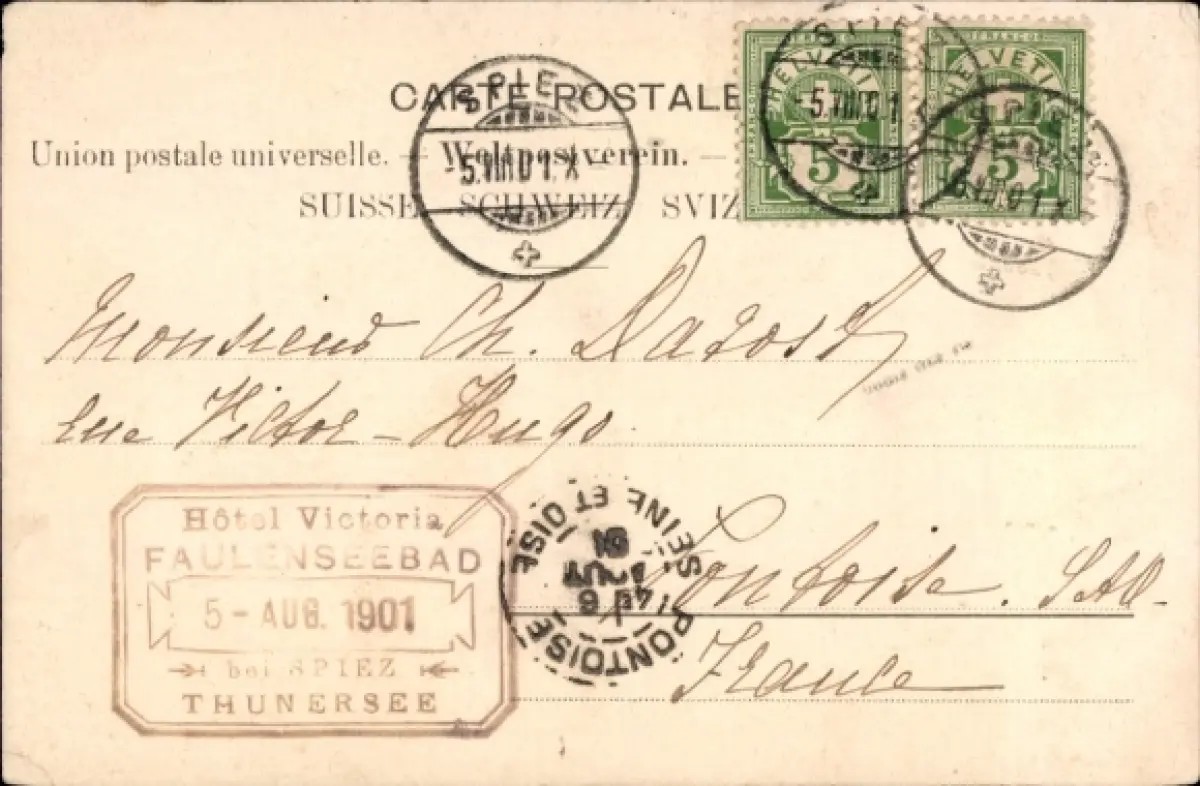 CARTE POSTALE
Union postale universelle. — Weltpostverein. —
SUISSE SCHWEIZ SVIZ
SPIEZ
5.VIII.01.X
FRANCO
HELVETIA
5
SPIEZ
5.VIII.01
FRANCO
HELVETIA
5
SPIEZ
5.VIII.01.X
Monsieur Ch.
rue Victor-Hugo
Pontoise. S&O.
France
Hôtel Victoria
FAULENSEEBAD
5-AUG. 1901
bei SPIEZ
THUNERSEE
PONTOISE
SEINE ET OISE
6
AOUT
01